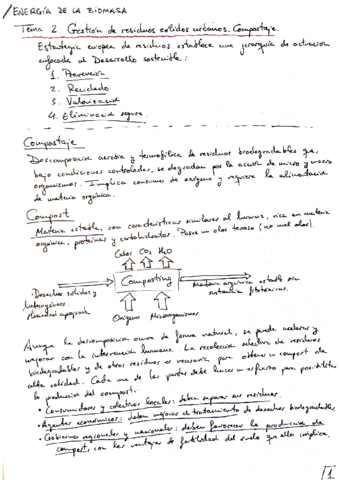 ENERGÍA DE LA BIOMASA
Tema 2 Gestión de residuos sólidos urbanos. Compostaje.
Estrategia europea de residuos establece una jerarquía de actuación
enfocada al Desarrollo sostenible:
1. Prevención
2. Reciclado
3. Valorización
4. Eliminación segura.
Compostaje
Descomposición aerobia y termofílica de residuos biodegradables que,
bajo condiciones controladas, se degradan por la acción de micro y macro
organismos. Implica consumo de oxígeno y requiere la alimentación
de materia orgánica.
Compost
Materia estable, con características similares al humus, rica en materia
orgánica, proteínas y carbohidratos. Posee un olor terroso (no mal olor).
Calor CO2 H2O
Composting
Desechos sólidos y
heterogéneos
Humedad apropiada
Materia orgánica estable sin
Oxígeno Microorganismos
Aunque la descomposición ocurre de forma natural, se puede acelerar y
mejorar con la intervención humana. La recolección selectiva de residuos
biodegradables y de otros residuos es necesaria para obtener un compost de
alta calidad. Cada una de las partes debe hacer un esfuerzo para posibilitar
la producción del compost.
• Consumidores y colectivos locales: deben separar sus residuos.
• Agentes económicos: deben mejorar el tratamiento de desechos biodegradables.
• Gobiernos regionales y nacionales: deben favorecer la producción de
compost, con las ventajas de fertilidad del suelo que ello implica.
1